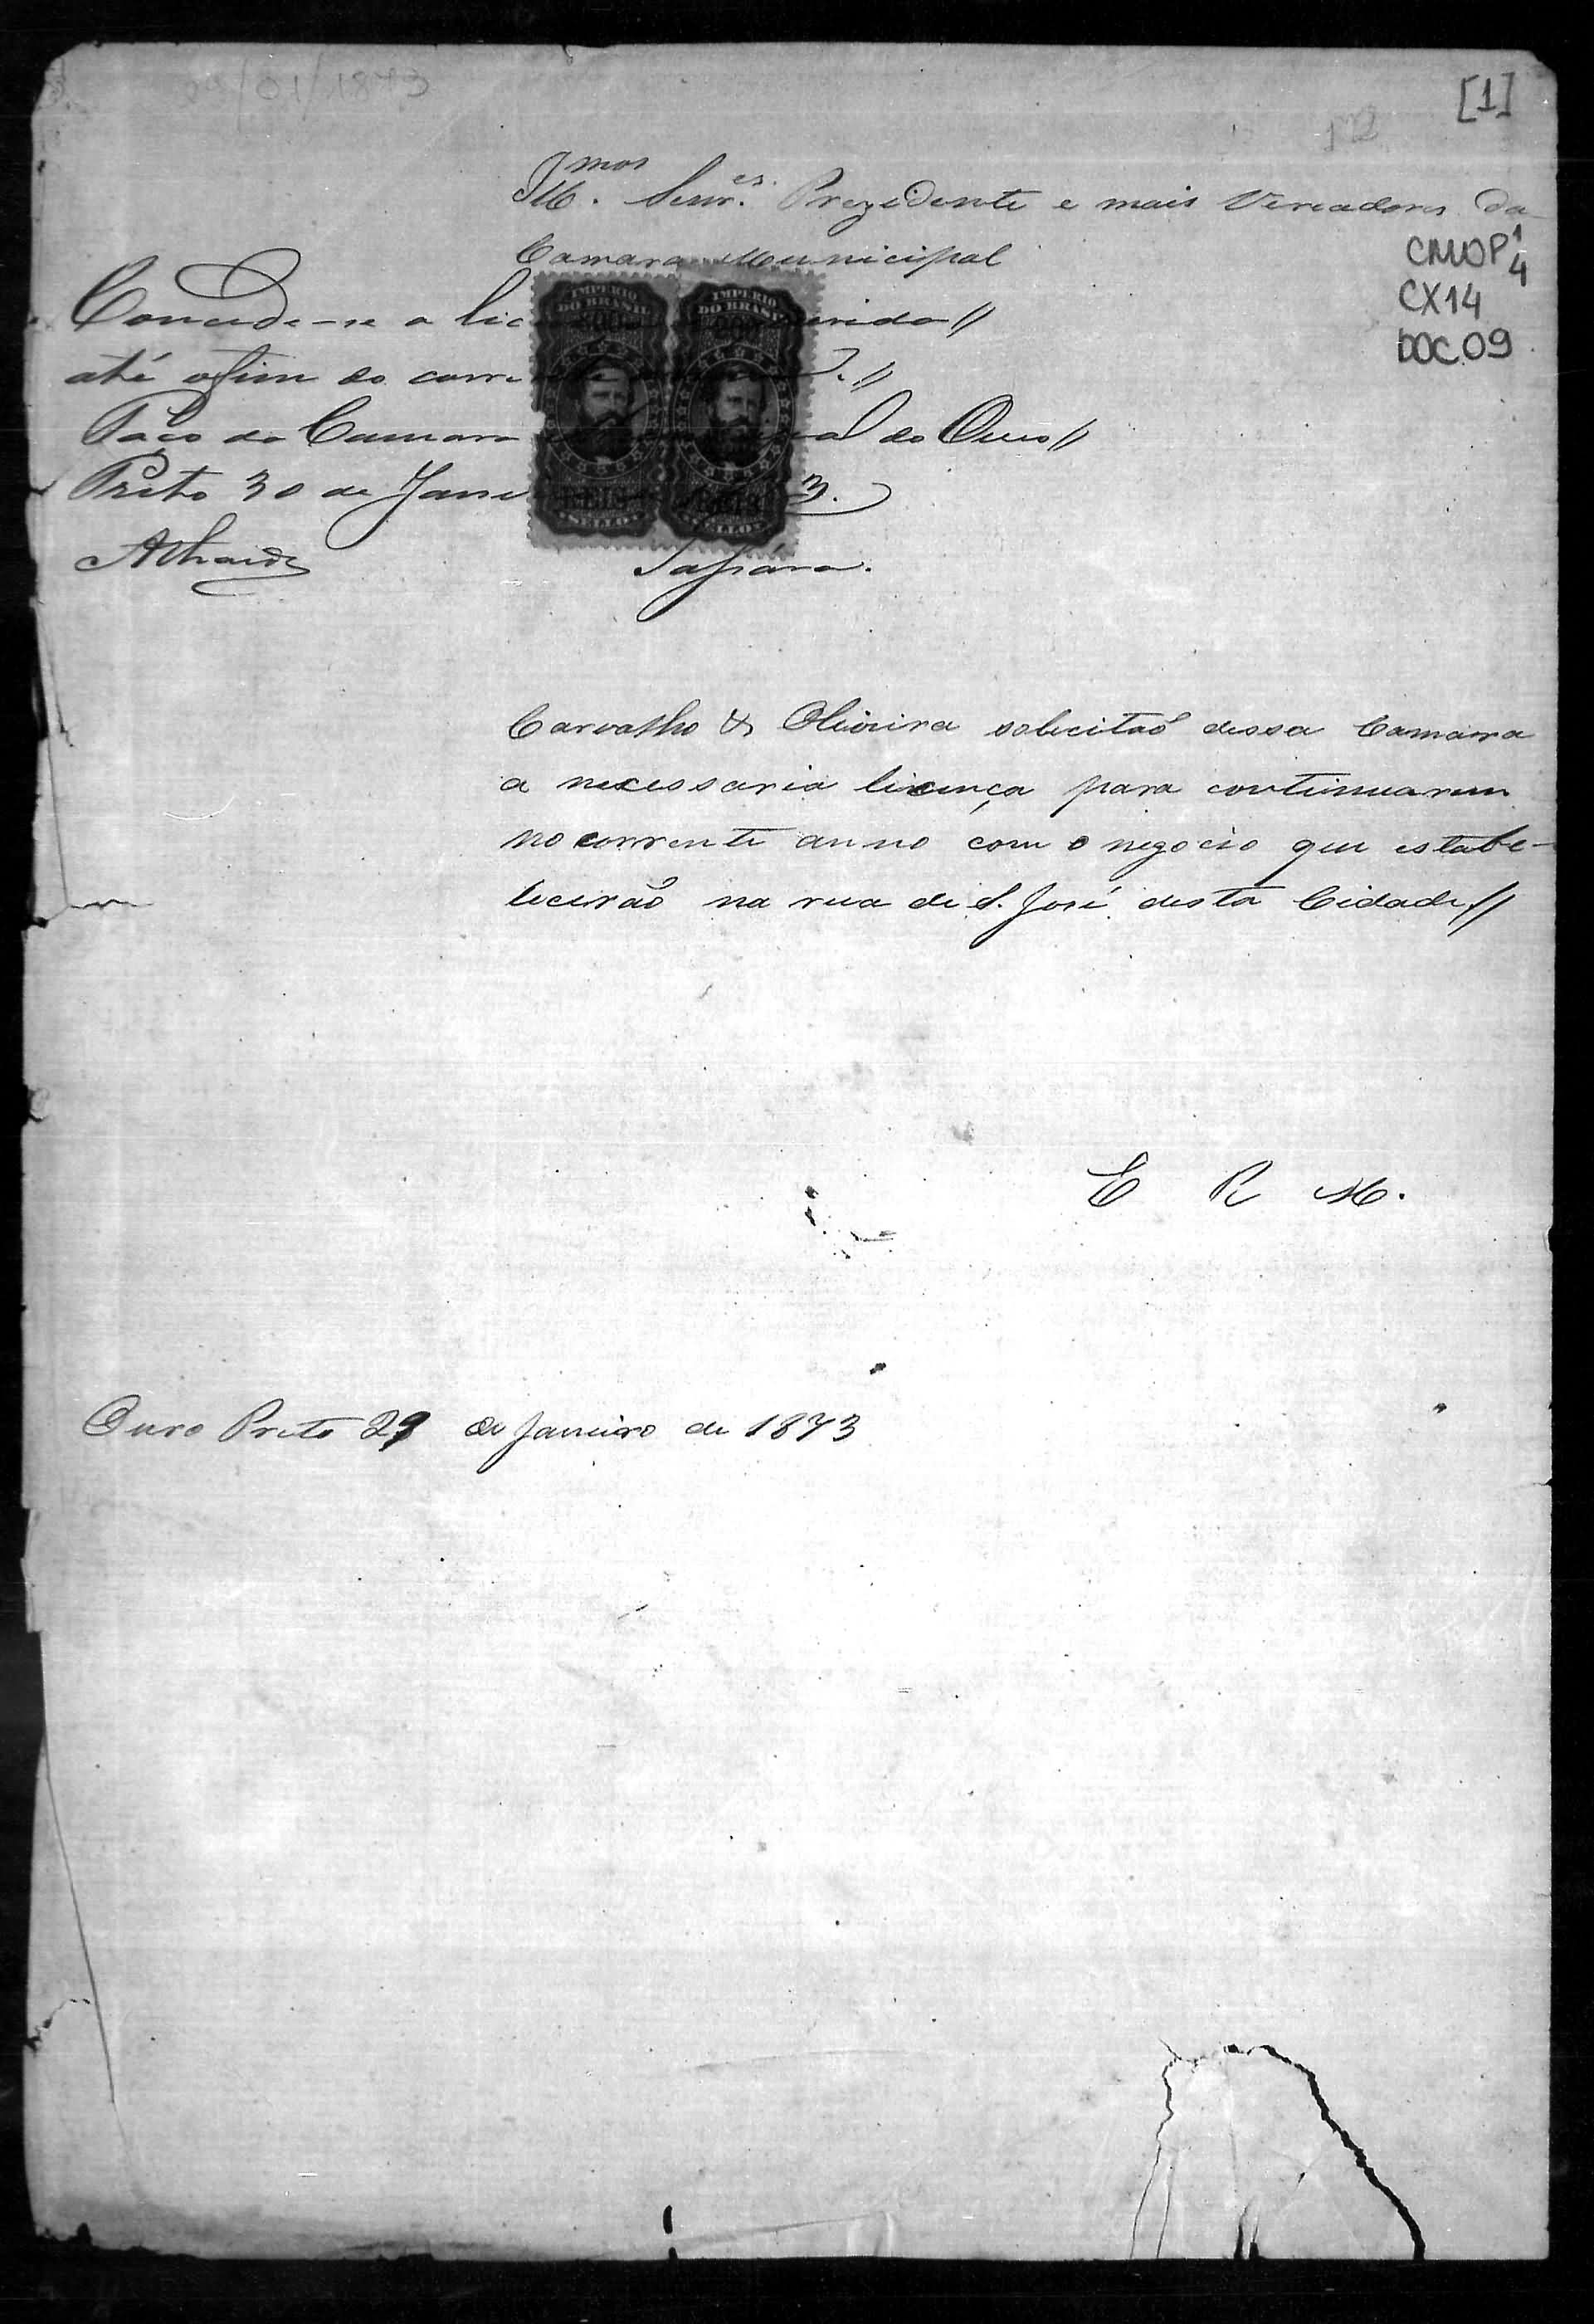 29/01/1873
[1]
Illmos. Senres. Prezidente e mais Vereadores da
Camara Municipal
CMOP 1/4
CX14
DOC.09
Concede-se a lic erida //
até o fim do corre //
Paço da Camara al do Ouro //
Preto 30 de Jane 3.
IMPERIO DO BRASIL 200 REIS SELLO
IMPERIO DO BRASIL 200 REIS SELLO
Carvalho & Oliveira solicitaõ dessa Camara
a necessaria licença para continuarem
no corrente anno com o negocio que estabe-
lecerão na rua de S. José desta Cidade //
E R M.
Ouro Preto 29 de Janeiro de 1873